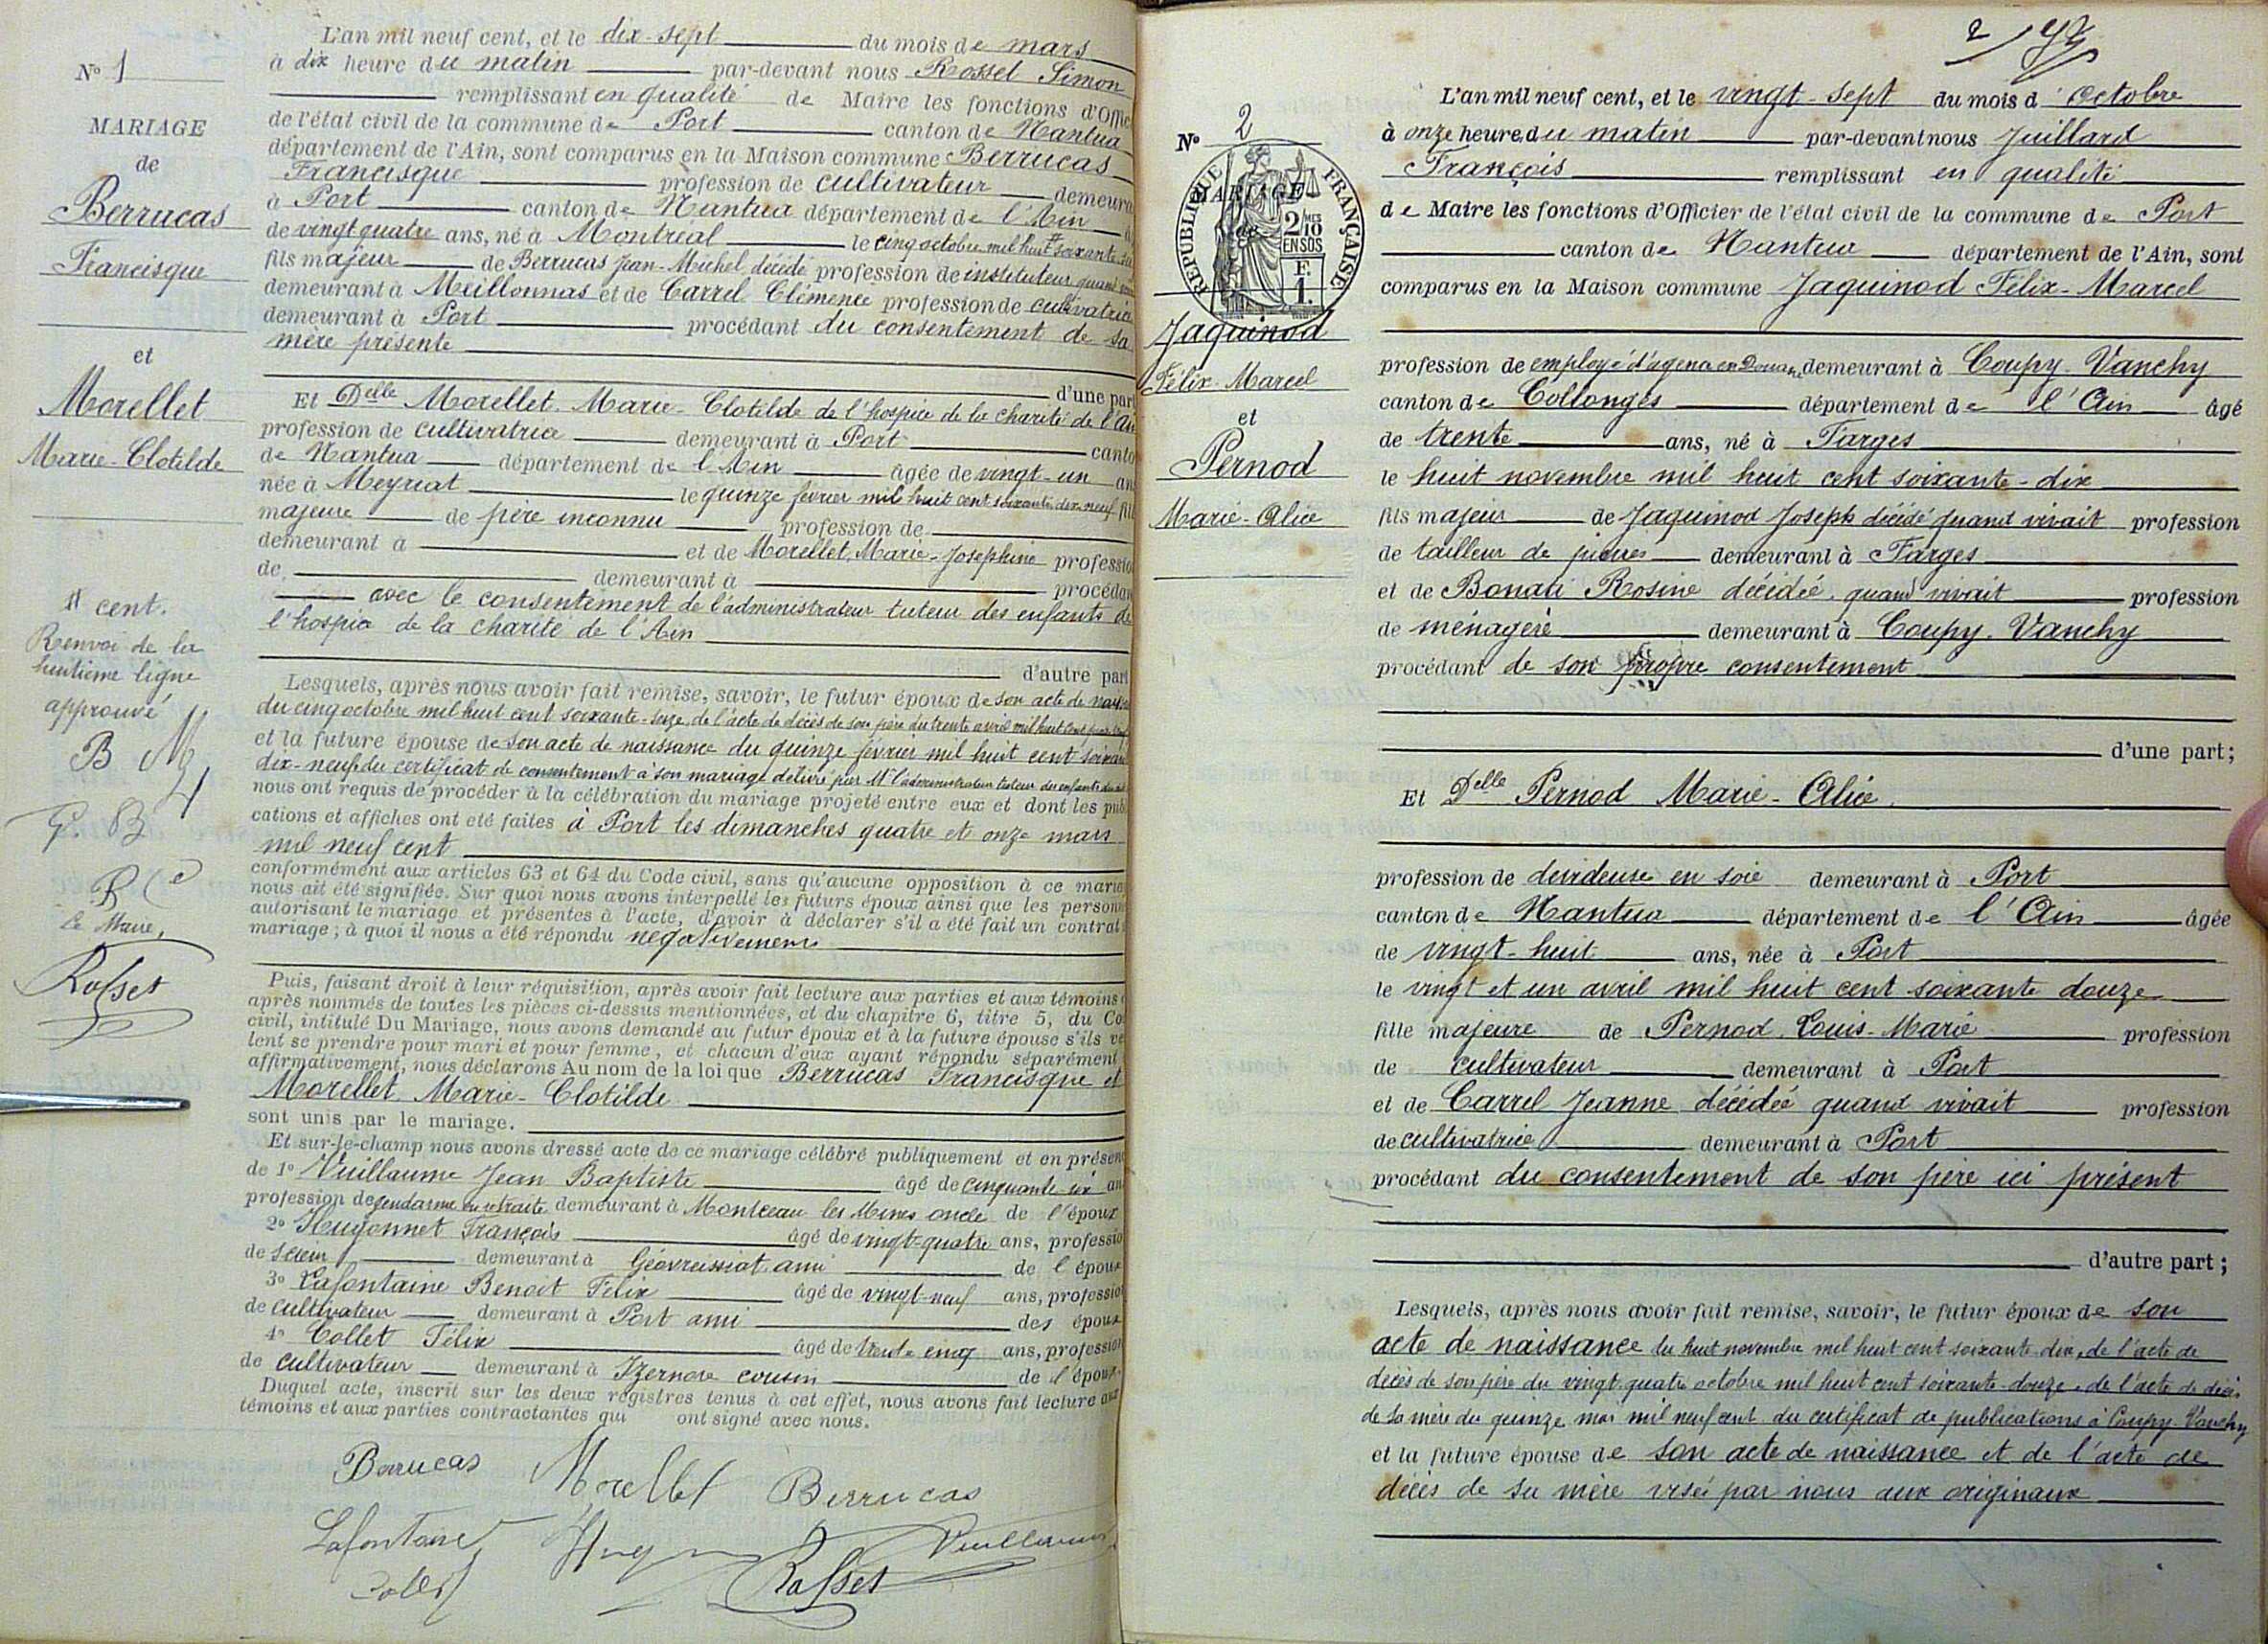 N° 1
MARIAGE
de
Berrucas
Francisque
et
Morellet
Marie-Clotilde
# cent.
Renvoi de la
huitième ligne
approuvé
B M
G. B
B C
Le Maire,
Rosset
L'an mil neuf cent, et le dix-sept du mois de mars
à dix heure du matin par-devant nous Rosset Simon
remplissant en qualité de Maire les fonctions d'Offic
de l'état civil de la commune de Port canton de Nantua
département de l'Ain, sont comparus en la Maison commune Berrucas
Francisque profession de cultivateur demeura
à Port canton de Nantua département de l'Ain
de vingt quatre ans, né à Montréal le cinq octobre mil huit # soixante
fils majeur de Berrucas Jean-Michel, décédé profession de instituteur quand
demeurant à Meillonnas et de Carrel Clémence profession de cultivatrice
demeurant à Port procédant du consentement de sa
mère présente
d'une part
Et Delle Morellet Marie-Clotilde de l'hospice de la charité de l'Ain
profession de cultivatrice demeurant à Port canto
de Nantua département de l'Ain âgée de vingt-un an
née à Meyriat le quinze février mil huit cent soixante dix-neuf fil
majeure de père inconnu profession de
demeurant à et de Morellet, Marie-Josephine professio
de demeurant à procédan
avec le consentement de l'administrateur tuteur des enfants de
l'hospice de la charité de l'Ain
d'autre part
Lesquels, après nous avoir fait remise, savoir, le futur époux de son acte de nais
du cinq octobre mil huit cent soixante-seize, de l'acte de décès de son père du trente avril mil huit cent
et la future épouse de son acte de naissance du quinze février mil huit cent soixan
dix-neuf du certificat de consentement à son mariage délivré par Mr l'administrateur tuteur des enfants
nous ont requis de procéder à la célébration du mariage projeté entre eux et dont les pub
cations et affiches ont été faites à Port les dimanches quatre et onze mars
mil neuf cent
conformément aux articles 63 et 64 du Code civil, sans qu'aucune opposition à ce maria
nous ait été signifiée. Sur quoi nous avons interpellé les futurs époux ainsi que les person
autorisant le mariage et présentes à l'acte, d'avoir à déclarer s'il a été fait un contrat
mariage ; à quoi il nous a été répondu négativement
Puis, faisant droit à leur réquisition, après avoir fait lecture aux parties et aux témoins
après nommés de toutes les pièces ci-dessus mentionnées, et du chapitre 6, titre 5, du Co
civil, intitulé Du Mariage, nous avons demandé au futur époux et à la future épouse s'ils ve
lent se prendre pour mari et pour femme, et chacun d'eux ayant répondu séparément
affirmativement, nous déclarons Au nom de la loi que Berrucas Francisque et
Morellet Marie-Clotilde
sont unis par le mariage.
Et sur-le-champ nous avons dressé acte de ce mariage célébré publiquement et en présen
de 1° Vuillaume Jean Baptiste âgé de cinquante six an
profession de gendarme en retraite demeurant à Montceau les Mines oncle de l'époux
2° Hugonnet François âgé de vingt-quatre ans, professio
de demeurant à Géovreissiat ami de l'époux
3° Lafontaine Benoit Félix âgé de vingt-neuf ans, profession
de cultivateur demeurant à Port ami des époux
4° Collet Félix âgé de trente cinq ans, profession
de cultivateur demeurant à Izernore cousin de l'époux
Duquel acte, inscrit sur les deux registres tenus à cet effet, nous avons fait lecture aux
témoins et aux parties contractantes qui ont signé avec nous.
Berrucas Morellet Berrucas
Lafontaine Hug Vuillaume
Collet Rosset
2
N° 2
RÉPUBLIQUE FRANÇAISE
MARIAGE
de
2/10 MES
EN SUS
F.
1.
Jaquinod
Félix-Marcel
et
Pernod
Marie-Alice
L'an mil neuf cent, et le vingt-sept du mois d'octobre
à onze heure du matin par-devant nous Juillard
François remplissant en qualité
de Maire les fonctions d'Officier de l'état civil de la commune de Port
canton de Nantua département de l'Ain, sont
comparus en la Maison commune Jaquinod Félix-Marcel
profession de employé d'agence en Douane demeurant à Coupy-Vanchy
canton de Collonges département de l'Ain âgé
de trente ans, né à Farges
le huit novembre mil huit cent soixante-dix
fils majeur de Jaquinod Joseph décédé quand vivait profession
de tailleur de pierres demeurant à Farges
et de Bonati Rosine décédée quand vivait profession
de ménagère demeurant à Coupy-Vanchy
procédant de son propre consentement
d'une part ;
Et Delle Pernod Marie-Alice
profession de devideuse en soie demeurant à Port
canton de Nantua département de l'Ain âgée
de vingt-huit ans, née à Port
le vingt et un avril mil huit cent soixante douze
fille majeure de Pernod Louis-Marie profession
de cultivateur demeurant à Port
et de Carrel Jeanne décédée quand vivait profession
de cultivatrice demeurant à Port
procédant du consentement de son père ici présent
d'autre part ;
Lesquels, après nous avoir fait remise, savoir, le futur époux de son
acte de naissance du huit novembre mil huit cent soixante-dix, de l'acte de
décès de son père du vingt-quatre octobre mil huit cent soixante-douze, de l'acte de décès
de sa mère du quinze mai mil neuf cent du certificat de publications à Coupy-Vanchy
et la future épouse de son acte de naissance et de l'acte de
décès de sa mère visés par nous aux originaux